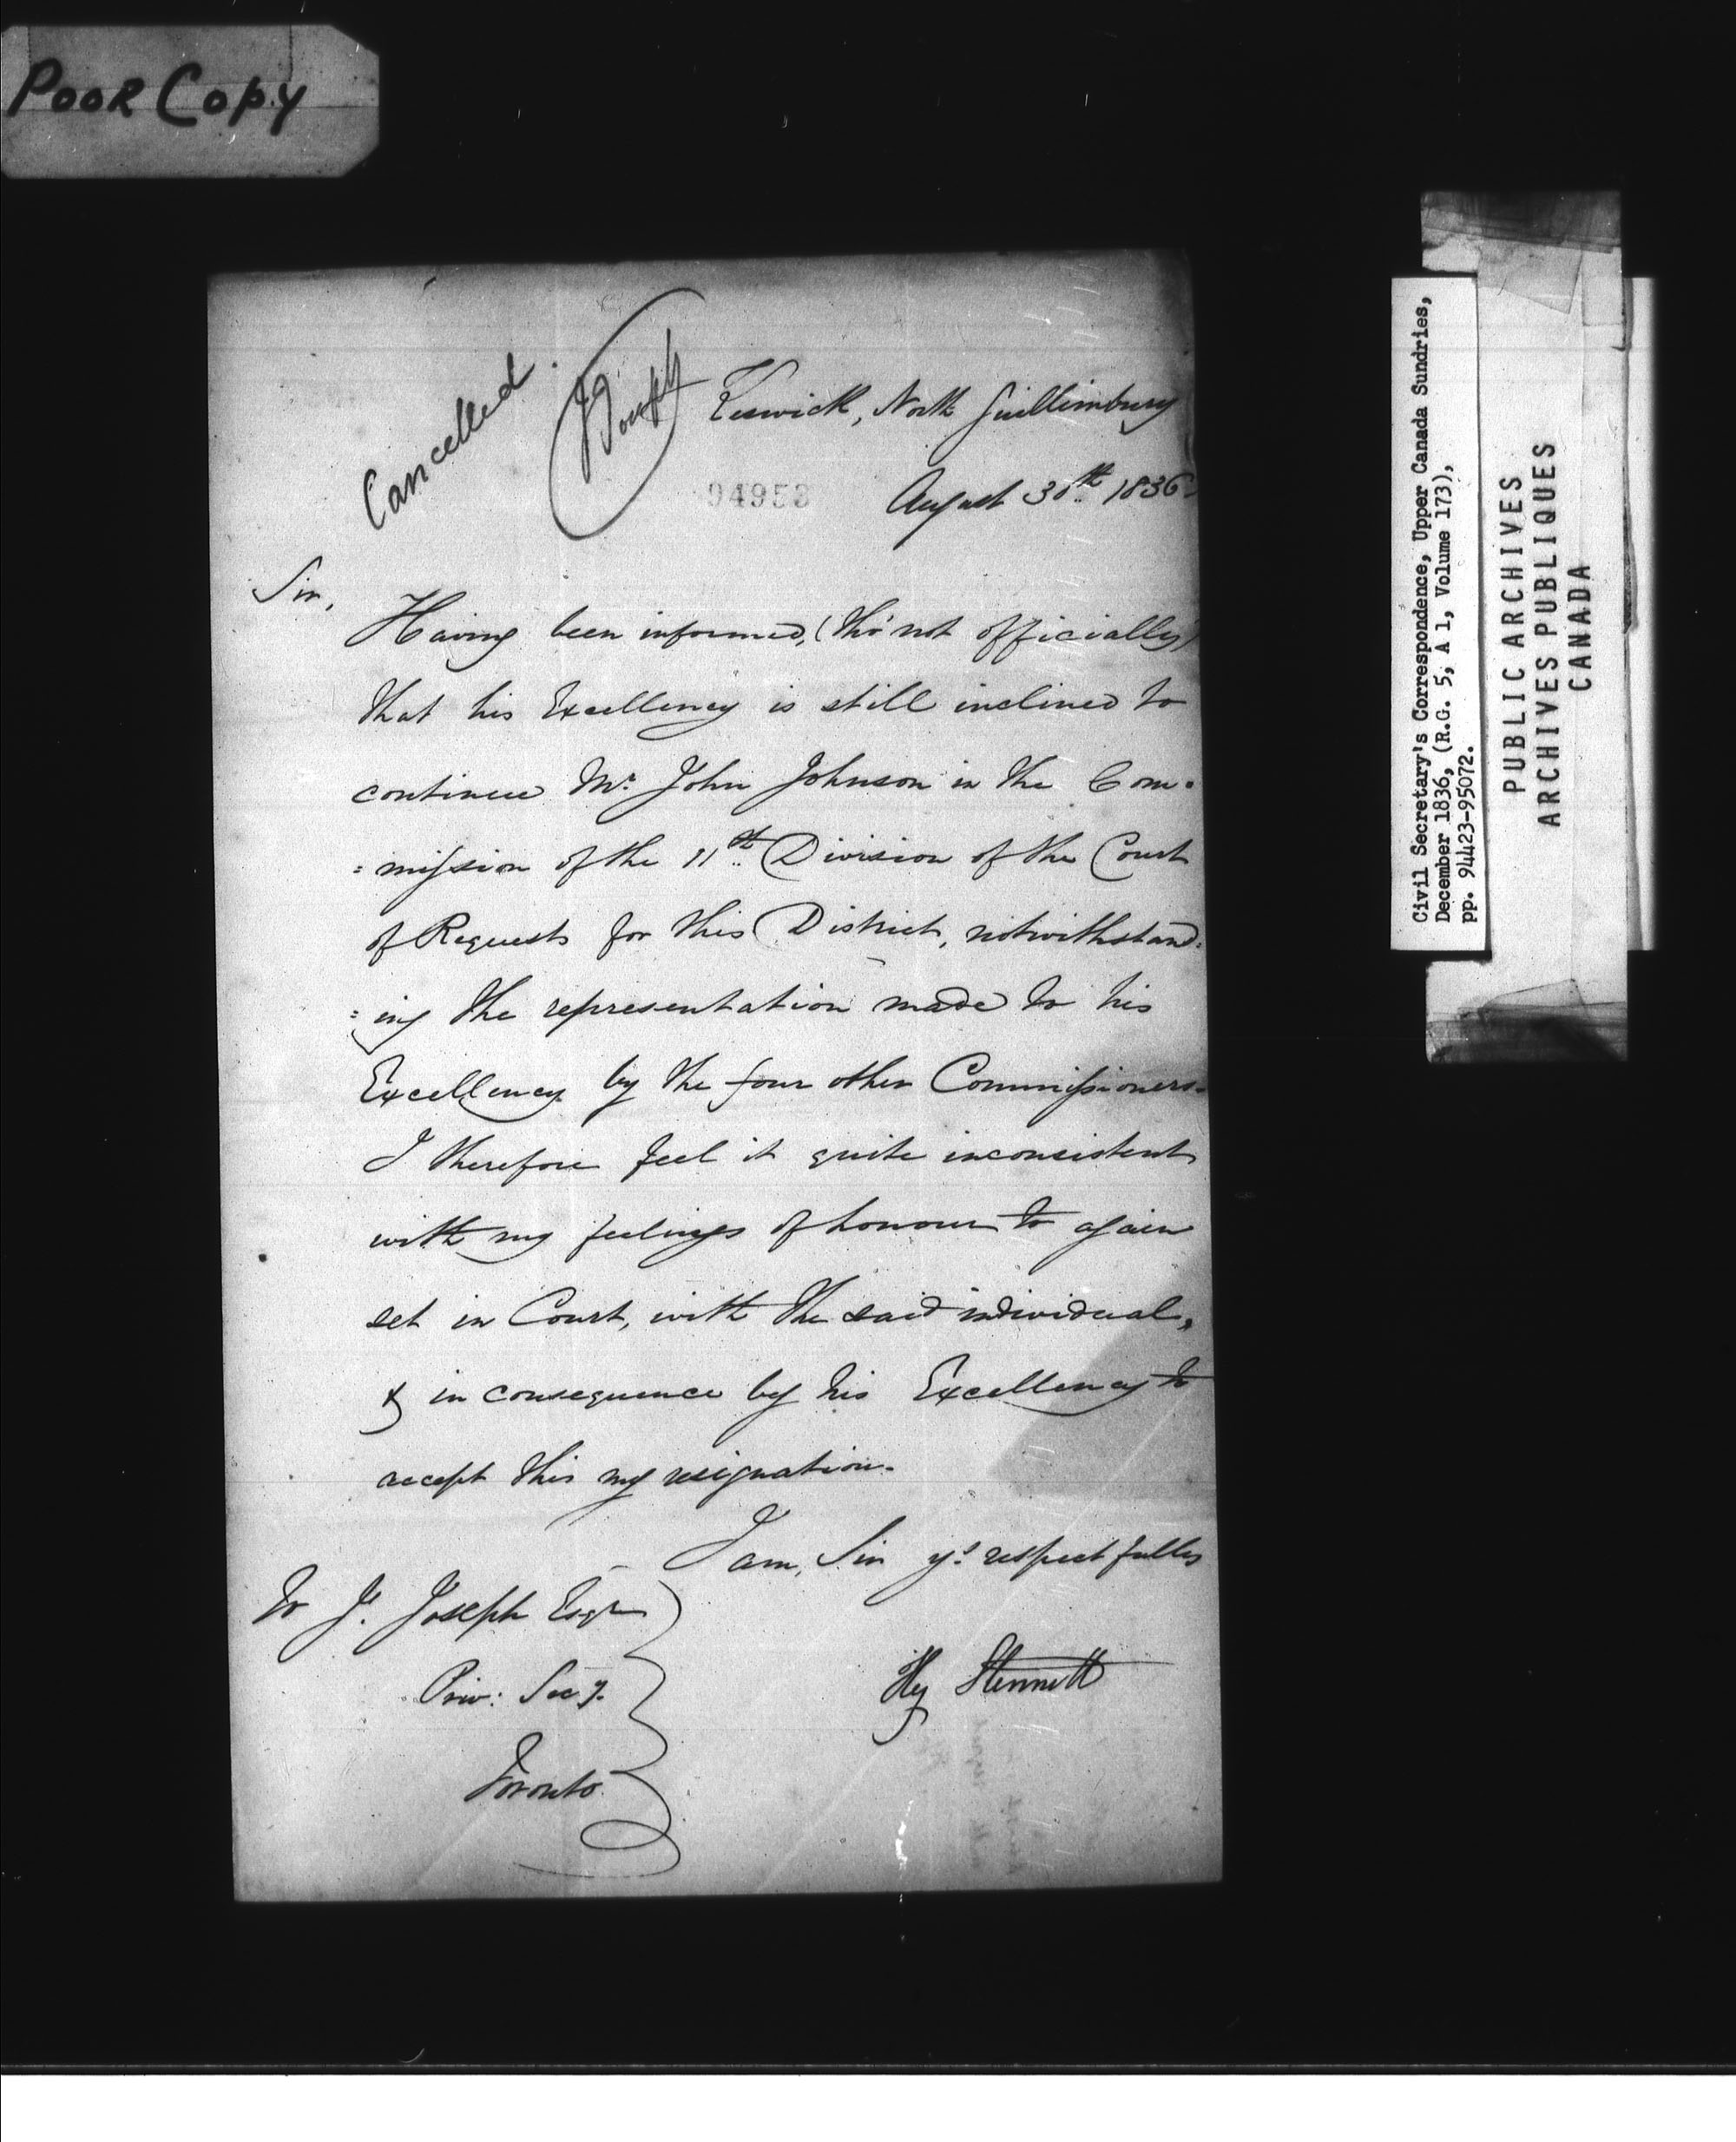 Poor Copy
Cancelled.
JJoseph
Keswick, North Guillimbury
94953
August 30th 1836
Sir,
Having been informed, (tho' not officially)
that his Excellency is still inclined to
continue Mr John Johnson in the Com-
=mission of the 11th Division of the Court
of Requests for this District, notwithstand=
=ing the representation made to his
Excellency by the four other Commissioners.
I therefore feel it quite inconsistent
with my feelings of honour to again
set in Court, with the said individual,
& in consequence beg his Excellency to
accept this my resignation.
I am, Sir yrs respectfully
To J. Joseph Esqr
Priv: Secy.
Toronto
Hy Stennett
Civil Secretary's Correspondence, Upper Canada Sundries,
December 1836, (R.G. 5, A 1, Volume 173),
pp. 94423-95072.
PUBLIC ARCHIVES
ARCHIVES PUBLIQUES
CANADA